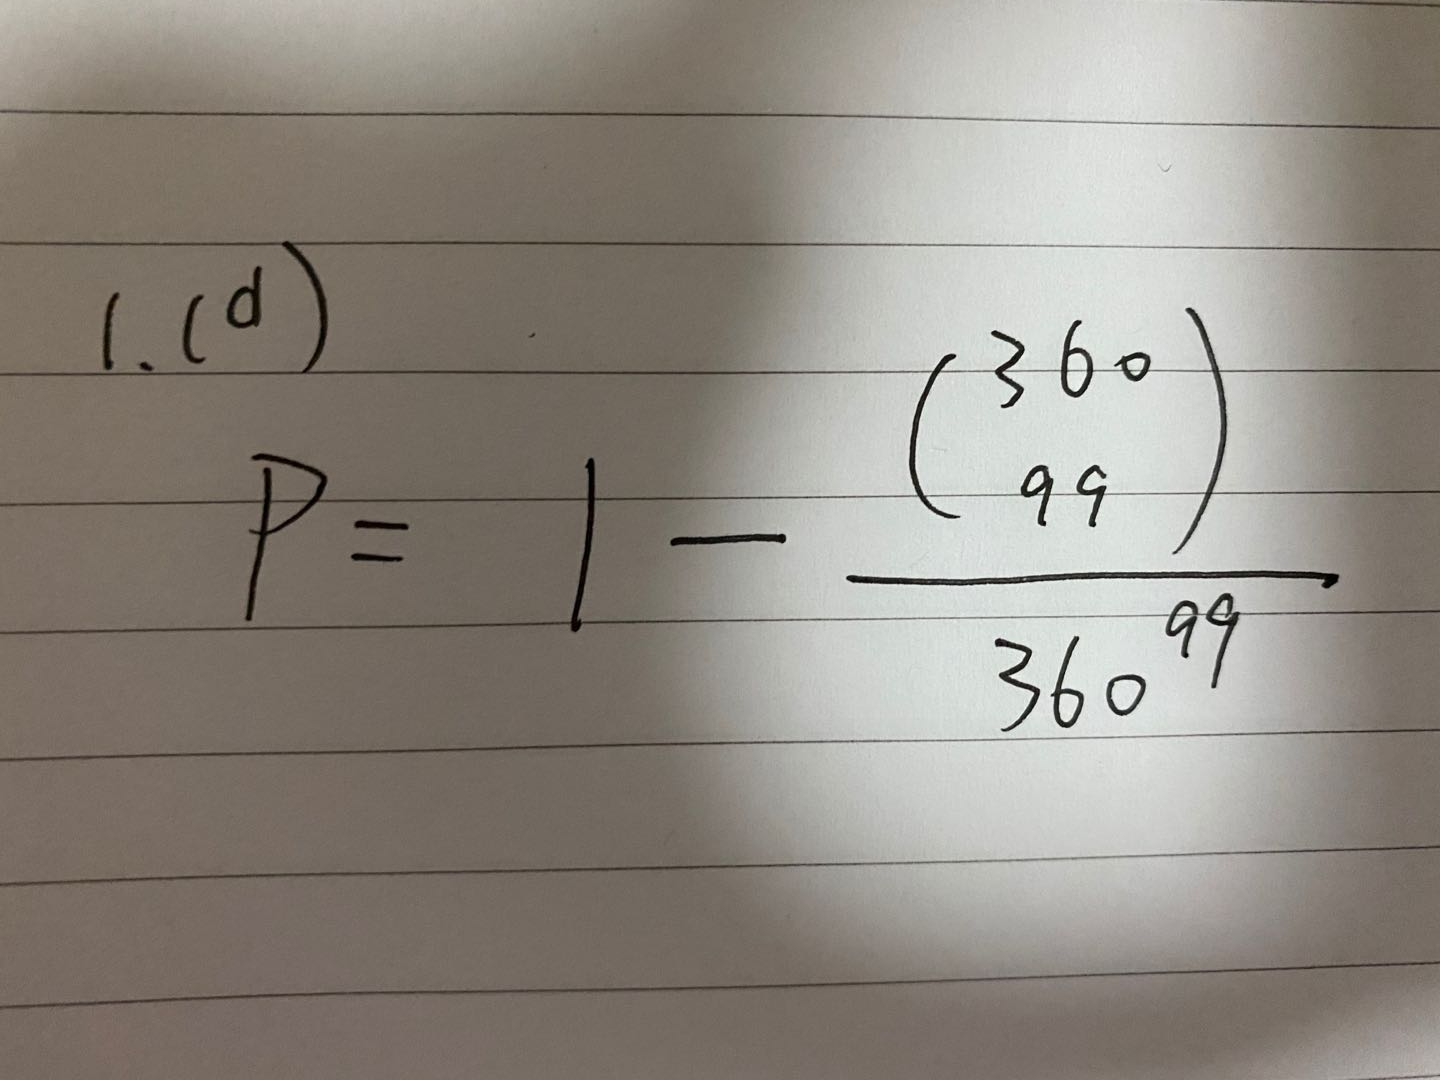 1.(d)
P = 1 - \frac{\binom{360}{99}}{360^{99}}